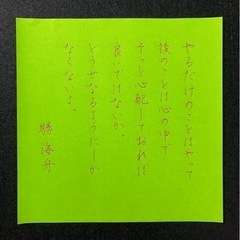 やるだけのことはやって
後のことは心の中で
そっと心配しておれば
良いではないか。
どうせなるようにしか
ならないよ。
勝海舟